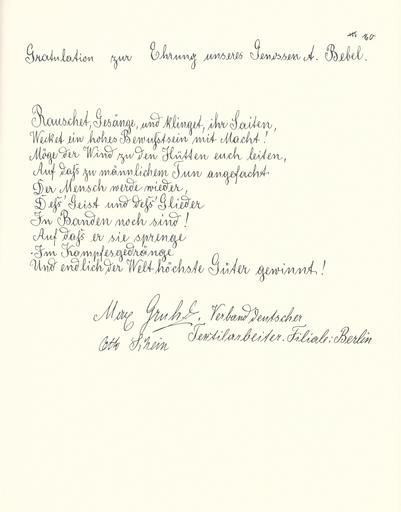 Gratulation zur Ehrung unseres Genossen A. Bebel.
Rauschet, Gesänge, und klinget, ihr Saiten,
Wecket ein hohes Bewußtsein mit Macht!
Möge der Wind zu den Hütten euch leiten,
Auf daß zu männlichem Tun angefacht
Der Mensch werde wieder,
Deß' Geist und deß' Glieder
In Banden noch sind!
Auf daß er sie sprenge
Im Kampfesgedränge
Und endlich der Welt höchste Güter gewinnt!
Max Verband Deutscher
Otto Textilarbeiter. Filiale: Berlin